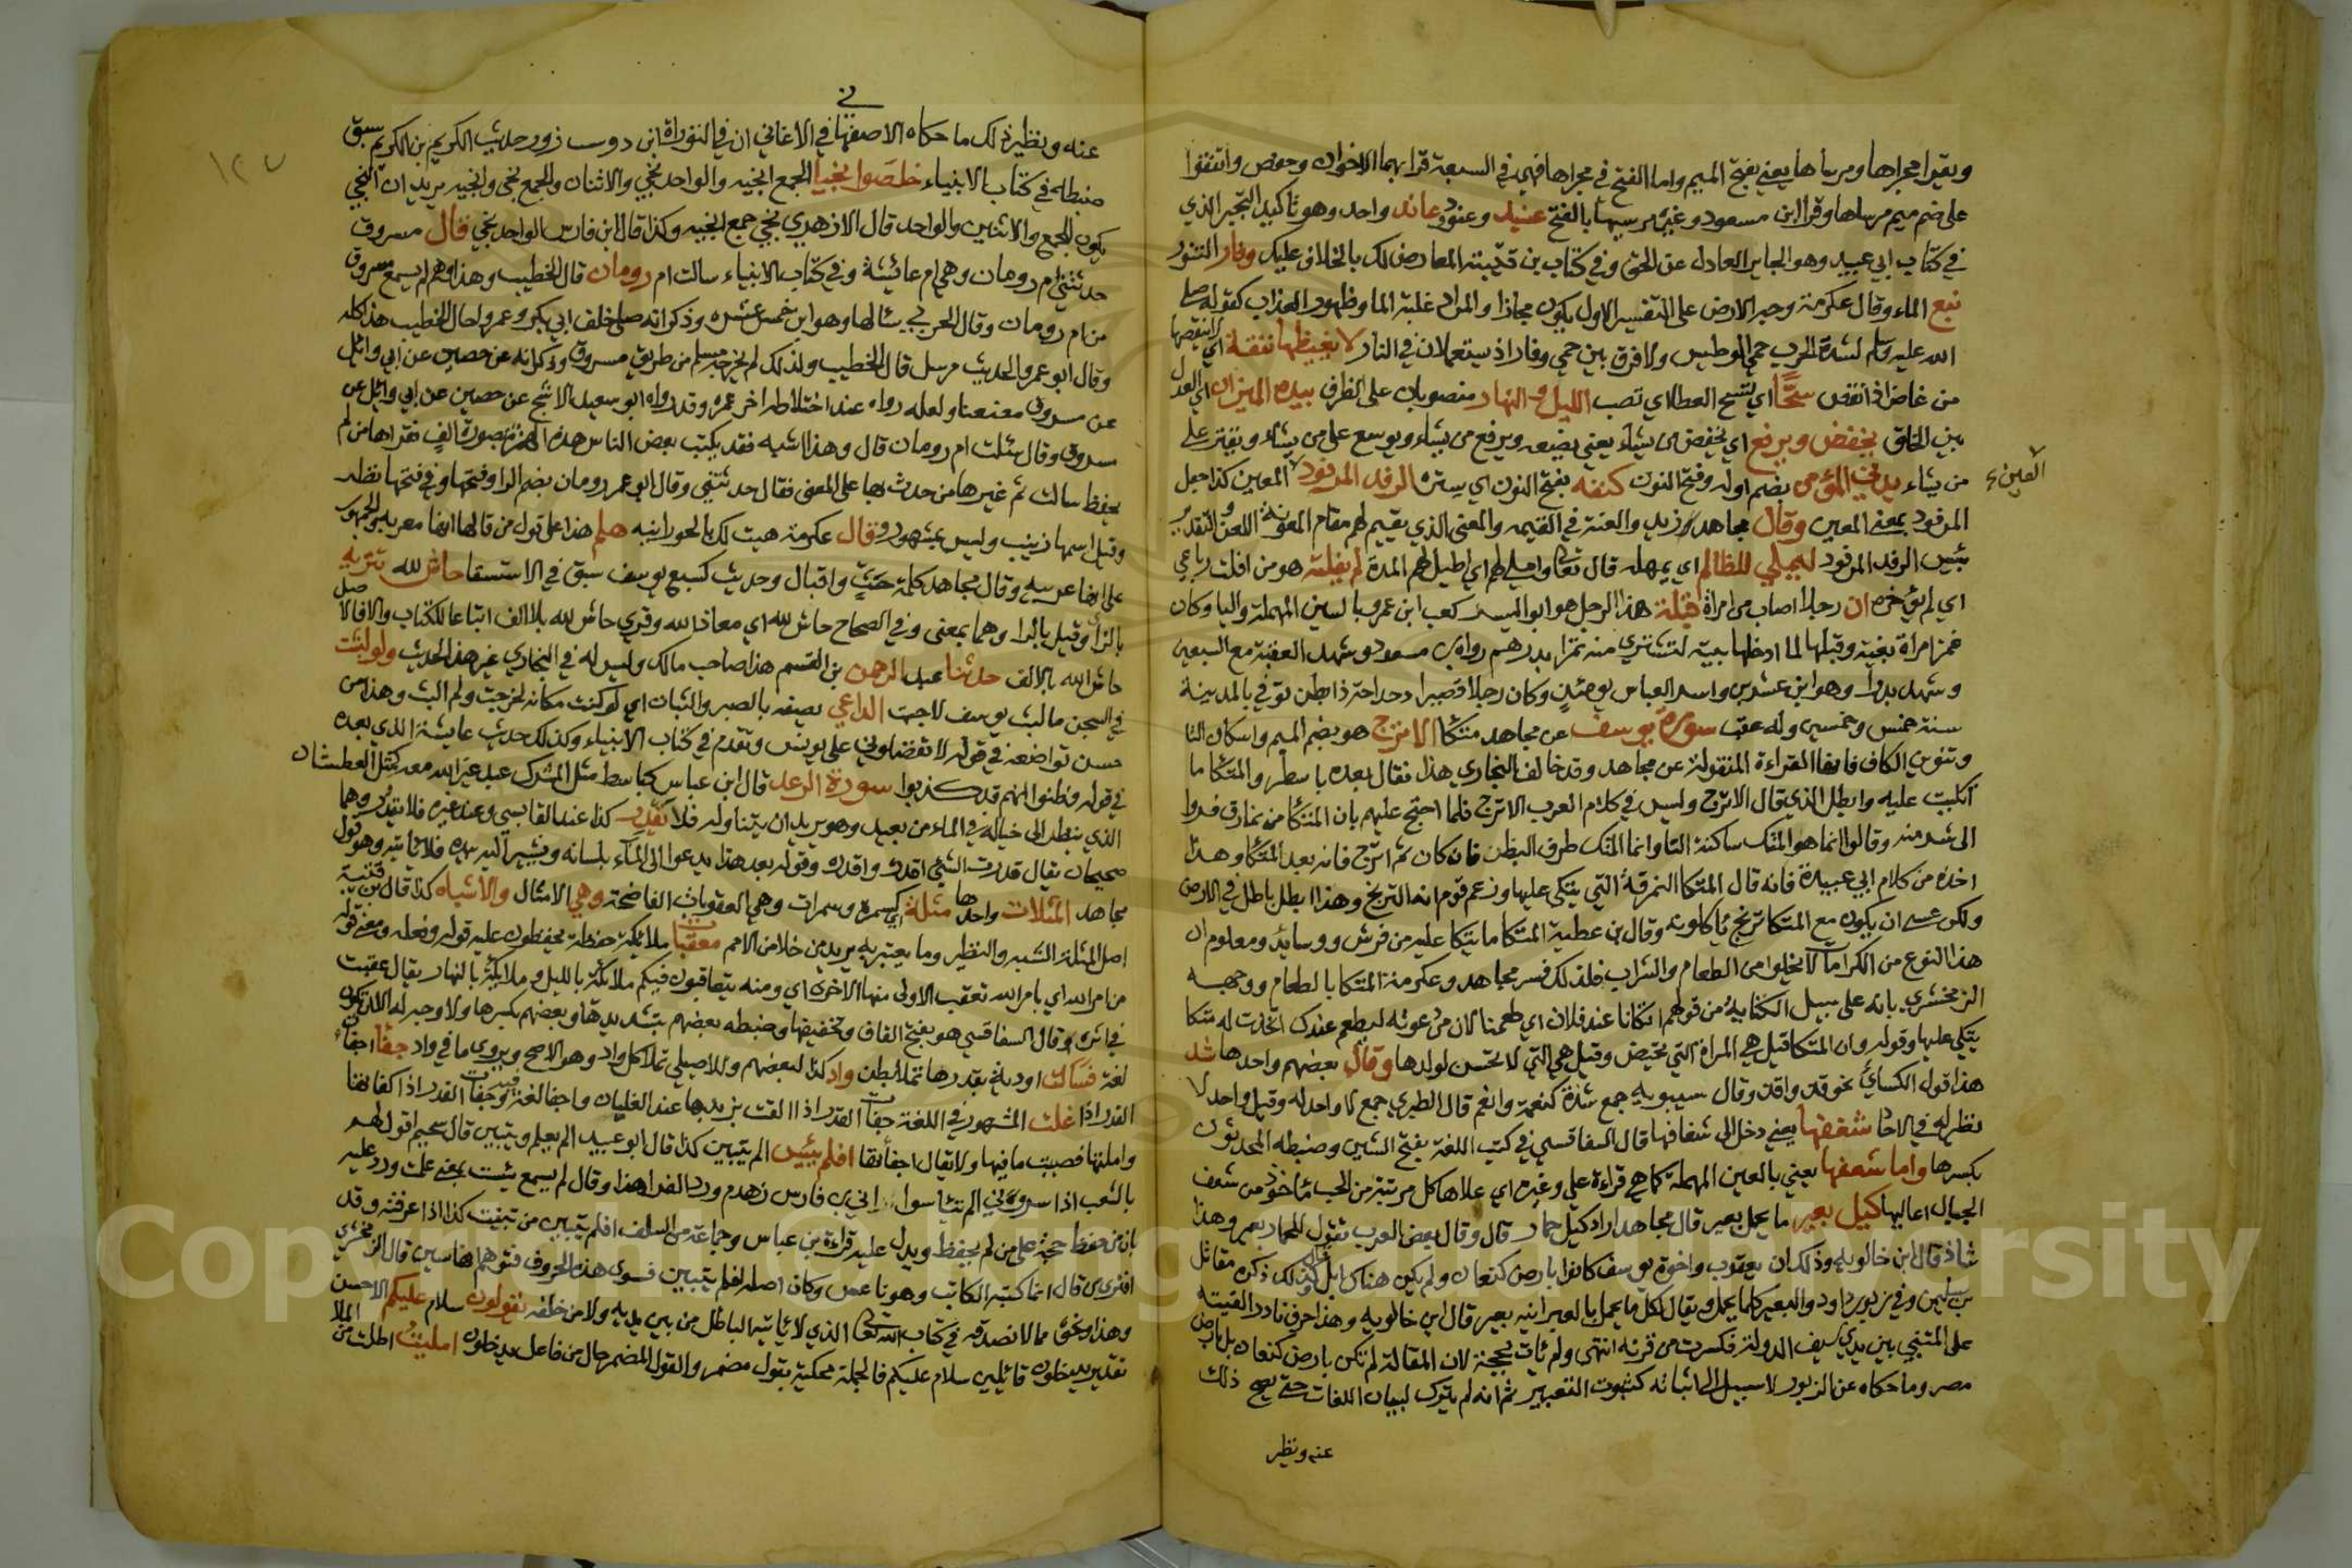 ويقرا مجراها ومرساها يعني بفتح الميم واما الفتح في مجراها فهي في السبعة قرا بهما الاخوان وحفص واتفقوا
على ضم ميم مرساها وقرا ابن مسعود وغيره مرسيها بالفتح عنيد وعنود وعاند واحد وهو تاكيد التجبر الذي
في كتاب ابي عبيد وهو الجاير العادل عن الحق وفي كتاب بن قتيبة المعارض لك بالخلاف عليك وفار التنور
نبع الماء وقال عكرمة وجه الارض على التفسير الاول يكون مجازا والمراد غلبة الما وظهور العذاب كقوله صلى
الله عليه وسلم لشدة الحرب حمي الوطيس ولا فرق بين حمي وفار اذ يستعملان في النار لا يغيظها نفقة اي لا ينقصها
من غاض اذا نقص سحا اي تسح العطا اي تصب الليل والنهار منصوبان على الظرف بيده الميزان اي العدل
بين الخلق يخفض ويرفع اي يخفض من يشاء يعني يضعه ويرفع من يشاء ويوسع على من يشاء ويقتر على
من يشاء يدني المؤمن بضم اوله وفتح النون كنفه بفتح النون اي ستره الرفد المرفود المعين كذا جعل
العين
المرفود بمعنى المعين وقال مجاهد والمعنى الذي يقيم لهم مقام المعونة اللعن والتقدير
بئس الرفد المرفود ليملي للظالم اي يمهله قال تعالى واملي لهم اي اطيل لهم المدة لم يفلته هو من افلت رباعي
اي لم يؤخره ان رجلا اصاب من امراة قبلة هذا الرجل هو ابو اليسر كعب ابن عمرو بالسين المهملة واليا وكان
غمز امراة بغية وقبلها لما ادخلها بيته لتشتري منه تمرا بدرهم رواه بن مسعود وشهد العقبة مع السبعين
وشهد بدرا وهو ابن عشرين واسر العباس يومئذ وكان رجلا قصيرا دحداحة ذا بطن توفي بالمدينة
سنة خمس وخمسين وله عقب سورة يوسف عن مجاهد متكا الاترج هو بضم الميم واسكان التا
وتنوين الكاف فانها القراءة المنقولة عن مجاهد وقد خالف البخاري هذا فقال بعده باسطر والمتكا ما
اتكيت عليه وابطل الذي قال الاترج وليس في كلام العرب الاترج فلما احتج عليهم بان المتكا من نمارق فروا
الى شر منه وقالوا انما هو المتك ساكنة التا وانما المتك طرف البظر فان كان ثم اترج فانه بعد المتكا وهذا
اخذه من كلام ابي عبيدة فانه قال المتكا النمرقة التي يتكى عليها وزعم قوم انه الترنج وهذا ابطل باطل في الارض
ولكن عسى ان يكون مع المتكا ترنج ياكلونه وقال بن عطية المتكا ما يتكا عليه من فرش ووسايد ومعلوم ان
هذا النوع من الكرامات لا يخلوا من الطعام والشراب فلذلك فسر مجاهد وعكرمة المتكا بالطعام ووجهه
الزمخشري بانه على سبيل الكناية من قولهم اتكانا عند فلان اي طعمنا لان من دعوته ليطعم عندك اتخذت له متكا
يتكي عليها وقوله وان المتكا قيل هي المراة التي تحيض وقيل هي التي لا تحسن لولدها وقال بعضهم واحدها شد
هذا قول الكسائي نحو قد واقد وقال سيبويه جمع شدة كنعمة وانعم قال الطبري جمع لا واحد له وقيل واحد لا
نظر له في الاحا شغفها يعني دخل الى شغافها قال السفاقسي في كتب اللغة بفتح الشين وضبطه المحدثون
بكسرها واما شعفها يعني بالعين المهملة كما هي قراءة علي وغيره اي علاها كل مرتبة من الحب ماخوذ من شعف
الجبال اعاليها كيل بعير ما يحمل بعير قال مجاهد اراد كيل حمار قال وقال بعض العرب تقول للحمار بعير وهذا
شاذ قال ابن خالويه وذلك ان يعقوب واخوة يوسف كانوا بارض كنعان ولم يكن هناك ابل وكذلك ذكره مقاتل
بن سليمن وفي زبور داود والبعير كلما يحمل ويقال لكل ما يحمل بالعبرانية بعير قال ابن خالويه وهذا حرف نادر القيته
على المتنبي بين يدي سيف الدولة فكسرت من قرنه انتهى ولم يات بحجة لان المقالة لم تكن بارض كنعان بل بارض
مصر وما حكاه عن الزبور لا سبيل الى اثباته كثبوت التعبير ثم انه لم يترك لبيان اللغات حتى يصح ذلك
عنه ونظير
في
١٢٧
عنه ونظير ذلك ما حكاه الاصفهاني في الاغاني ان في التوراة ابن دوست زور حديث الكريم بن الكريم سبق
ضبطه في كتاب الانبياء خلصوا نجيا الجمع انجيه والواحد نجي والاثنان والجمع نجي وانجيه يريد ان النجي
يكون للجمع والاثنين والواحد قال الازهري نجي جمع انجيه وكذا قال ابن فارس الواحد نجي قال مسروق
حدثتني ام رومان وهي ام عائشة وفي كتاب الانبياء سالت ام رومان قال الخطيب وهذا وهم لم يسمع مسروق
من ام رومان وقال الحربي سالها وهو ابن خمس عشرة وذكر انه صلى خلف ابي بكر وعمر واحال الخطيب هذا كله
وقال ابو عمر والحديث مرسل قال الخطيب ولذلك لم يخرجه مسلم من طريق مسروق وذكر انه عن حصين عن ابي وائل
عن مسروق معنعنا ولعله رواه عند اختلاطه اخر عمره وقد رواه ابو سعيد الاشج عن حصين عن ابي وائل عن
مسروق وقال سئلت ام رومان قال وهذا اشبه فقد يكتب بعض الناس هذه الهمزة بصورة الف فقراها من لم
يحفظ سالت ثم غيرها من حدث بها على المعنى فقال حدثتني وقال ابو عمر رومان بضم الرا وفتحها وفي فتحها نظر
وقيل اسمها زينب وليس بمشهور وقال عكرمة هيت لك بالحورانيه هلم هذا على قول من قالها انها معربه والجمهور
على انها عربيه وقال مجاهد كلمة حث واقبال وحديث كسبع يوسف سبق في الاستسقا حاش لله تنزيه
بالزا وقيل بالرا وهما بمعنى وفي الصحاح حاش لله اي معاذ الله وقرئ حاش لله بلا الف اتباعا للكتاب والا فالاصل
حاشا لله بالالف حدثنا عبد الرحمن بن القسم هذا صاحب مالك وليس له في البخاري غير هذا الحديث ولو لبثت
في السجن ما لبث يوسف لاجبت الداعي يصفه بالصبر والثبات اي لو كنت مكانه لخرجت ولم البث وهذا من
حسن تواضعه في قوله لا تفضلوني على يونس وتقدم في كتاب الانبياء وكذلك حديث عايشة الذي بعده
في قوله وظنوا انهم قد كذبوا سورة الرعد قال ابن عباس كباسط مثل المشرك عبد غير الله معه كمثل العطشان
الذي ينظر الى خياله في الماء من بعيد وهو يريد ان يتناوله فلا تقدر كذا عند القابسي وعند غيره فلا يقدر وهما
صحيحان يقال قدرت الشئ اقدر واقدر وقوله بعد هذا يدعوا الى الماء بلسانه ويشير اليه بيده فلا ياتيه وهو قول
مجاهد المثلات واحدها مثلة كسمرة وسمرات وهي العقوبات الفاضحة وهي الامثال والاشباه كذا قال بن قتيبة
اصل المثلة الشبه والنظير وما يعتبر به يريد من خلا من الامم معقبات ملائكة حفظة يحفظون عليه قوله وفعله ومعنى قوله
من امر الله اي بامر الله تعقب الاولى منها الاخرى اي ومنه يتعاقبون فيكم ملائكة بالليل وملائكة بالنهار يقال عقبت
في اثره وقال السفاقسي هو بفتح القاف وتخفيفها وضبطه بعضهم بتشديدها وبعضهم بكسرها ولا وجه له الا ان يكون
لغة فسالت اودية بقدرها تملا بطن واد كذا لبعضهم وللاصيلي تملا كل واد وهو الاصح ويروى ما في واد جفا اجفات
القدر اذا غلت المشهور في اللغة جفات القدر اذا القت بزبدها عند الغليان واجفا لغة وجفات القدر اذا كفاتها
واملتها فصببت ما فيها ولا يقال اجفاتها افلم ييئس الم يتبين كذا قال ابو عبيد الم يعلم ويتبين قال سحيم اقول لهم
بالشعب اذ ياسرونني الم تيئسوا اني بن فارس زهدم ورد الفرا هذا وقال لم يسمع يئست بمعنى علمت ورد عليه
بان من حفظ حجة على من لم يحفظ ويدل عليه قراءة بن عباس وجماعة من السلف افلم يتبين من تبينت كذا اذا عرفته وقد
افترى من قال انما كتبه الكاتب وهو ناعس وكان اصله افلم يتبين فسوى هذه الحروف فتوهم انها سين قال الزمخشري
وهذا ونحوه مما لا نصدقه في كتاب الله تعالى الذي لا ياتيه الباطل من بين يديه ولا من خلفه يقولون سلام عليكم الاحسن
تقدير يدخلون قائلين سلام عليكم فالجملة محكية بقول مضمر والقول المضمر حال من فاعل يدخلون امليت اطلت من الملا